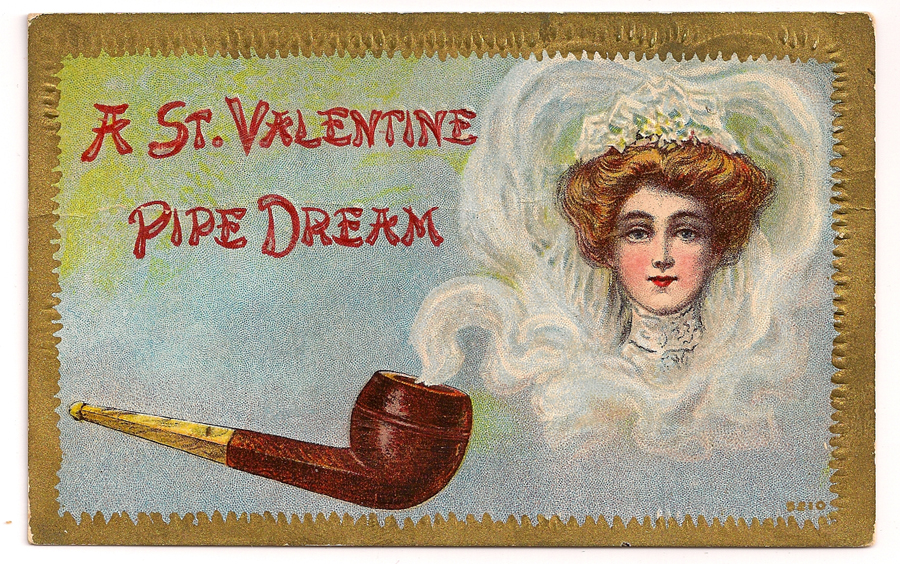 A ST. VALENTINE
PIPE DREAM